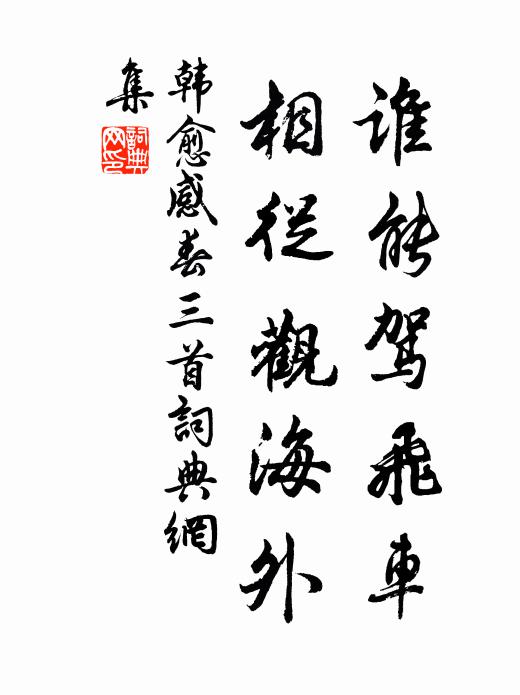 誰能駕飛車
相從觀海外
韩愈感春三首詞典網
集
詞典网印